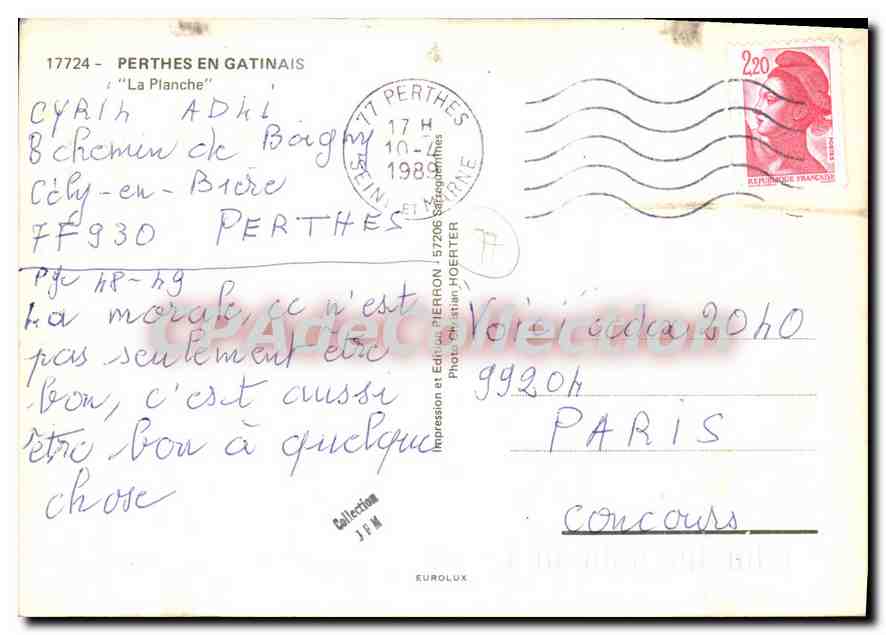 17724 - PERTHES EN GATINAIS
"La Planche"
CYRIL ADHI
8 chemin de Boigny
Cély-en-Bière
77930 PERTHES
Pge 48-49
La morale, ce n'est
pas seulement être
bon, c'est aussi
être bon à quelque
chose
77 PERTHES
17 H
10-4
1989
SEINE ET MARNE
2,20
POSTES
REPUBLIQUE FRANÇAISE
77
Impression et Edition PIERRON - 57206 Sarreguemines
Photo Christian HOERTER
Voici cedex 2040
99204
PARIS
CONCOURS
Collection
JFM
EUROLUX
CPAdeCollection